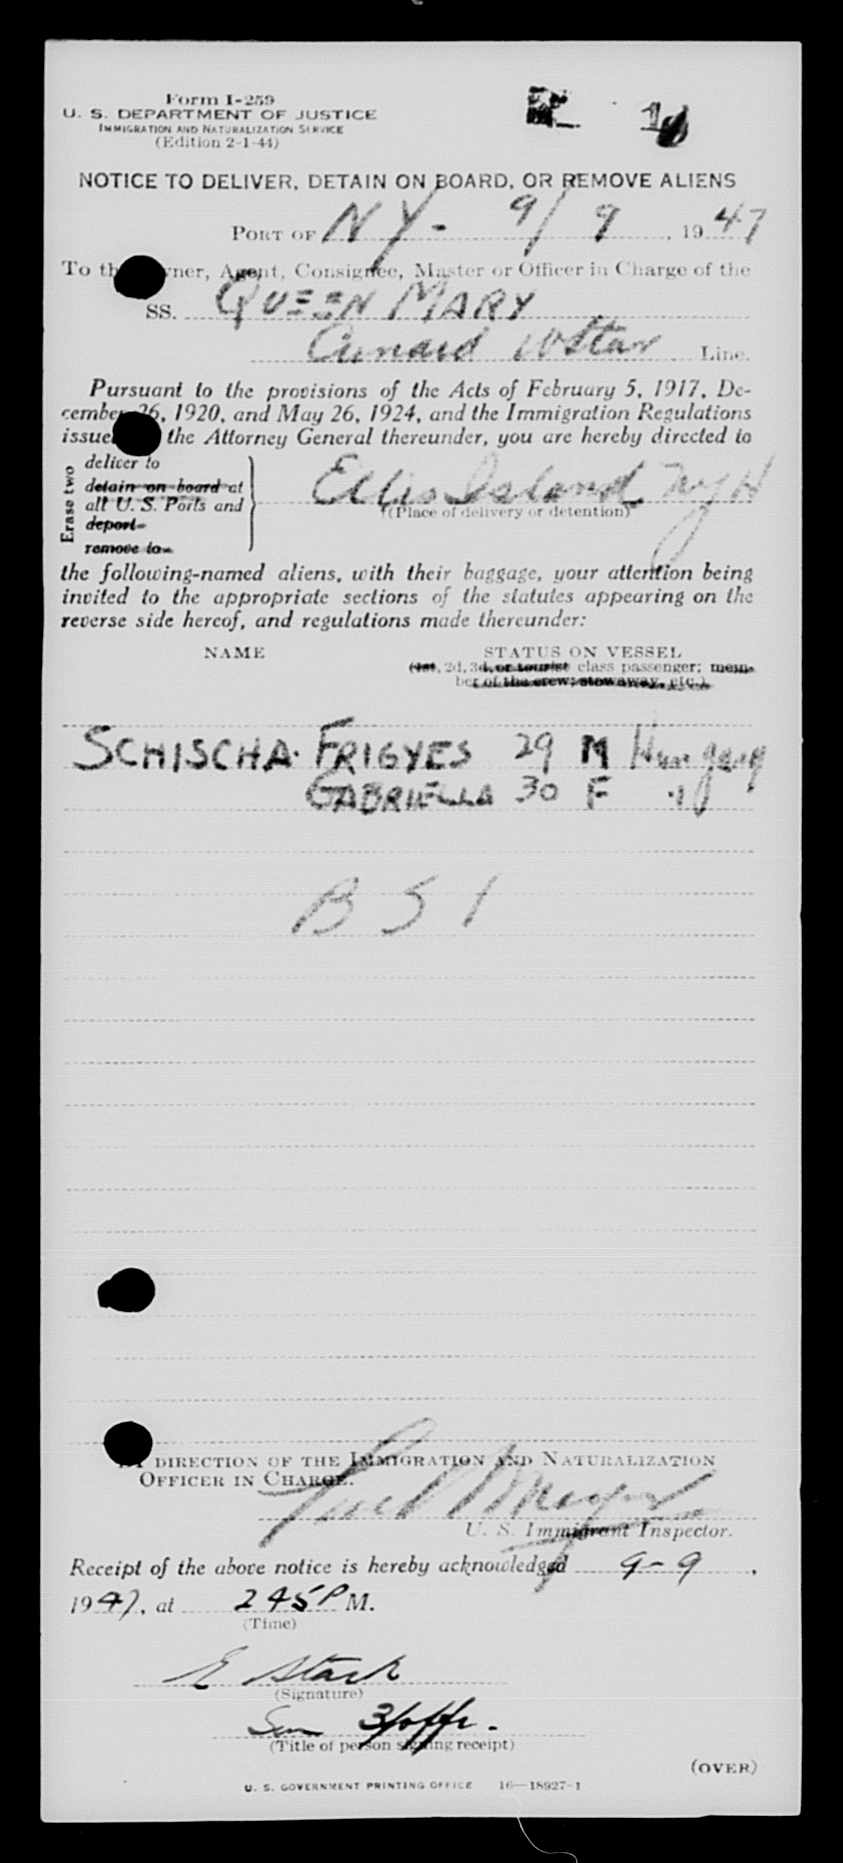 Form I-259
U. S. DEPARTMENT OF JUSTICE
IMMIGRATION AND NATURALIZATION SERVICE
(Edition 2-1-44)
NOTICE TO DELIVER, DETAIN ON BOARD, OR REMOVE ALIENS
PORT OF NY- 9/9, 1947
To th ner, Agent, Consignee, Master or Officer in Charge of the
SS. QUEEN MARY
Cunard WStar Line.
Pursuant to the provisions of the Acts of February 5, 1917, De-
cember 26, 1920, and May 26, 1924, and the Immigration Regulations
issue the Attorney General thereunder, you are hereby directed to
Erase two
deliver to
detain on board at
all U. S. Ports and
deport
remove to
Ellis Island NYH
(Place of delivery or detention)
the following-named aliens, with their baggage, your attention being
invited to the appropriate sections of the statutes appearing on the
reverse side hereof, and regulations made thereunder:
NAME STATUS ON VESSEL
(1st, 2d, 3d, or tourist class passenger; mem-
ber of the crew; stowaway, etc.)
SCHISCHA. FRIGYES 29 M Hungary
GABRIELLA 30 F "
B S I
DIRECTION OF THE IMMIGRATION AND NATURALIZATION
OFFICER IN CHARGE.
U. S. Immigrant Inspector.
Receipt of the above notice is hereby acknowledged 9-9,
1947, at 2 45 P M.
(Time)
E Stack
(Signature)
(Title of person signing receipt)
(OVER)
U. S. GOVERNMENT PRINTING OFFICE 16—18927-1